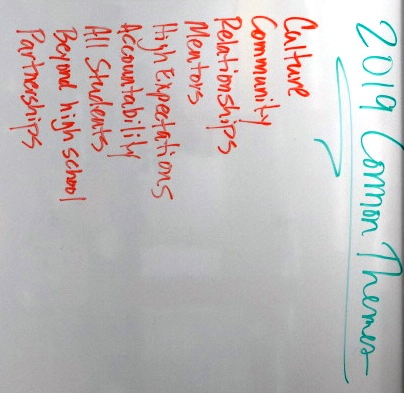 2019 Common Themes
Culture
Community
Relationships
Mentors
High Expectations
Accountability
All Students
Beyond high school
Partnerships